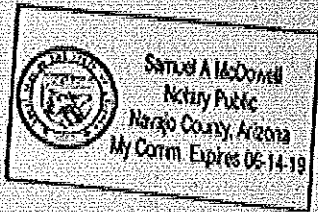 Samuel A McDowell
Notary Public
Navajo County, Arizona
My Comm. Expires 06-14-19